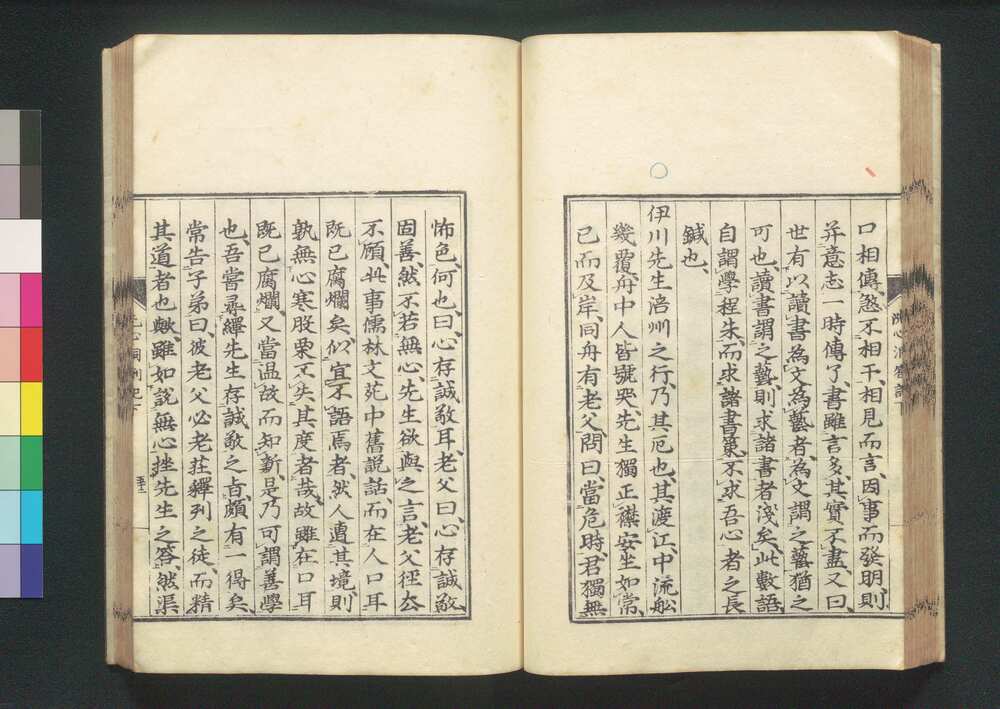 口相傳煞不相干、相見而言、因事而發明、則
并意志一時傳了、書雖言多、其實不盡、又曰、
世有以讀書為文為藝者、為文謂之藝、猶之
可也、讀書謂之藝、則求諸書者淺矣、此數語
自謂學程朱、而求諸書策、不求吾心者之長
鍼也、
伊川先生涪州之行、乃其厄也、其渡江、中流船
幾覆、舟中人皆號哭、先生獨正襟安坐如常、
已而及岸、同舟有老父、問曰、當危時、君獨無
怖色、何也、曰、心存誠敬耳、老父曰、心存誠敬、
固善、然不若無心、先生欲與之言、老父徑去
不顧、此事儒林文苑中舊說話、而在人口耳
既已腐爛矣、似宜不語焉者、然人遭其境、則
孰無心寒股栗不失其度者哉、故雖在口耳
既已腐爛、又當溫故而知新、是乃可謂善學
也、吾嘗尋繹先生存誠敬之旨、頗有一得矣、
常告子弟曰、彼老父必老莊釋列之徒、而精
其道者也歟、雖如說無心挫先生之答、然渠
洗心洞劄記下